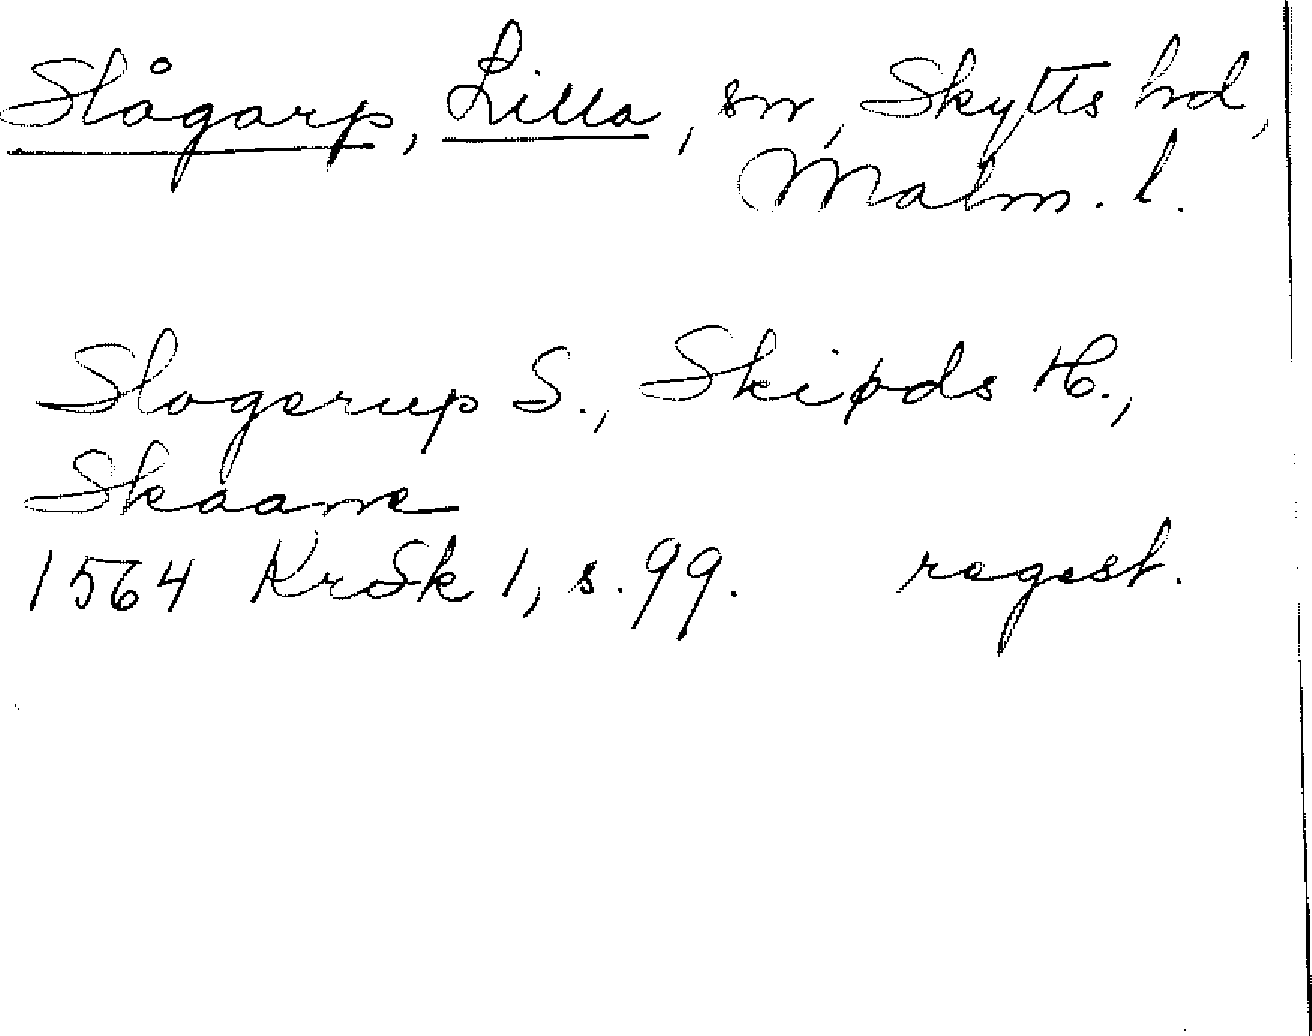 Slågarp, Lilla, sn, Skytts hd,
Malm. l.
Slogerup S., Skiøds H.,
Skaane
1564 KrSk 1, s. 99. regest.